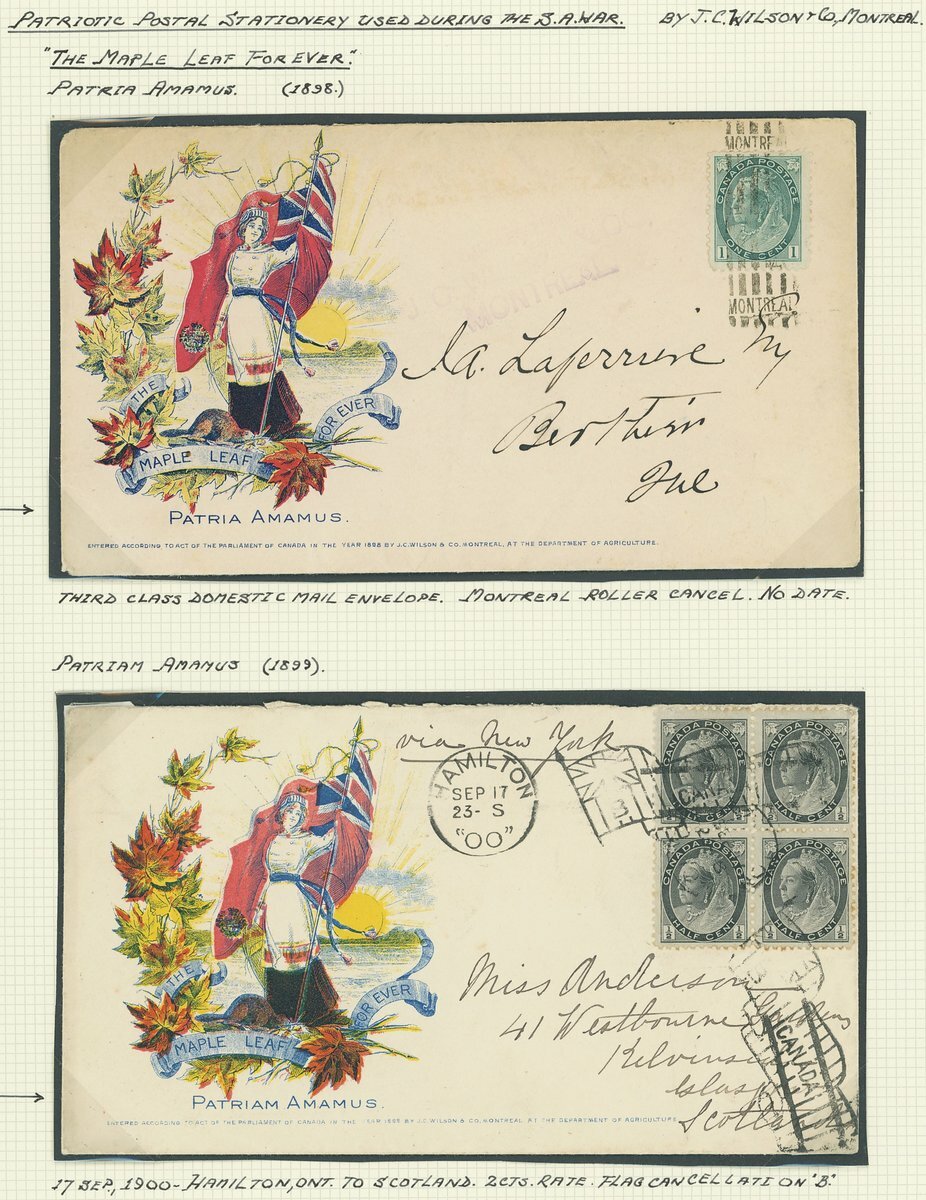 PATRIOTIC POSTAL STATIONERY USED DURING THE S.A. WAR. BY J.C. WILSON & CO, MONTREAL.
"THE MAPLE LEAF FOR EVER".
PATRIA AMAMUS. (1898.)
MONTREAL
CANADA POSTAGE
1 ONE CENT 1
MONTREAL
MONTREAL
Laferriere
Que
THE
MAPLE LEAF
FOR EVER
PATRIA AMAMUS.
ENTERED ACCORDING TO ACT OF THE PARLIAMENT OF CANADA IN THE YEAR 1898 BY J.C. WILSON & CO. MONTREAL, AT THE DEPARTMENT OF AGRICULTURE.
THIRD CLASS DOMESTIC MAIL ENVELOPE. MONTREAL ROLLER CANCEL. NO DATE.
PATRIAM AMAMUS (1899).
via New York
HAMILTON
SEP 17
23- S
"00"
B
CANADA
CANADA POSTAGE
CANADA POSTAGE
HALF CENT
CANADA POSTAGE
½ HALF CENT ½
CANADA POSTAGE
½ HALF CENT ½
Miss Anderson
41 Westbourne Gardens
Scotland
CANADA
THE
MAPLE LEAF
FOR EVER
PATRIAM AMAMUS.
ENTERED ACCORDING TO ACT OF THE PARLIAMENT OF CANADA IN THE YEAR 1898 BY J.C. WILSON & CO. MONTREAL, AT THE DEPARTMENT OF AGRICULTURE.
17 SEP., 1900 - HAMILTON, ONT. TO SCOTLAND. 2CTS. RATE. FLAG CANCELLATION 'B'.